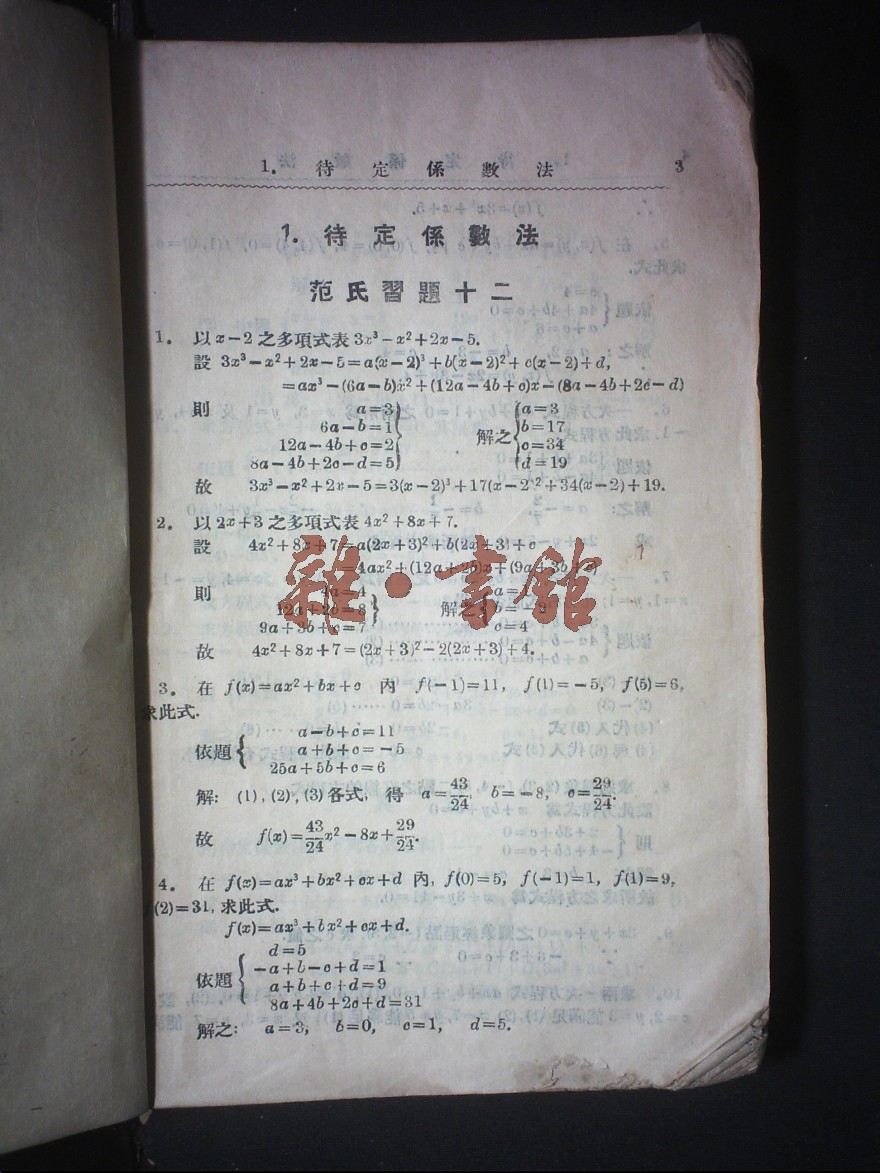 1. 待定係數法 3
1. 待定係數法
范氏習題十二
1. 以x−2之多項式表3x³−x²+2x−5.
設 3x³−x²+2x−5=a(x−2)³+b(x−2)²+c(x−2)+d,
=ax³−(6a−b)x²+(12a−4b+c)x−(8a−4b+2c−d)
則 a=3
6a−b=1
12a−4b+c=2
8a−4b+2c−d=5
解之
a=3
b=17
c=34
d=19
故 3x³−x²+2x−5=3(x−2)³+17(x−2)²+34(x−2)+19.
2. 以2x+3之多項式表4x²+8x+7.
設 4x²+8x+7=a(2x+3)²+b(2x+3)+c
=4ax²+(12a+2b)x+(9a+3b+c)
則 4a=4
12a+2b=8
9a+3b+c=7
解之
c=4
故 4x²+8x+7=(2x+3)²−2(2x+3)+4.
3. 在 f(x)=ax²+bx+c 內 f(−1)=11, f(1)=−5, f(5)=6,
求此式.
依題
a−b+c=11
a+b+c=−5
25a+5b+c=6
解: (1), (2), (3)各式, 得 a=43/24, b=−8, c=29/24.
故 f(x)=43/24x²−8x+29/24.
4. 在 f(x)=ax³+bx²+cx+d 內, f(0)=5, f(−1)=1, f(1)=9,
f(2)=31, 求此式.
f(x)=ax³+bx²+cx+d.
依題
d=5
−a+b−c+d=1
a+b+c+d=9
8a+4b+2c+d=31
解之: a=3, b=0, c=1, d=5.
雜·書館